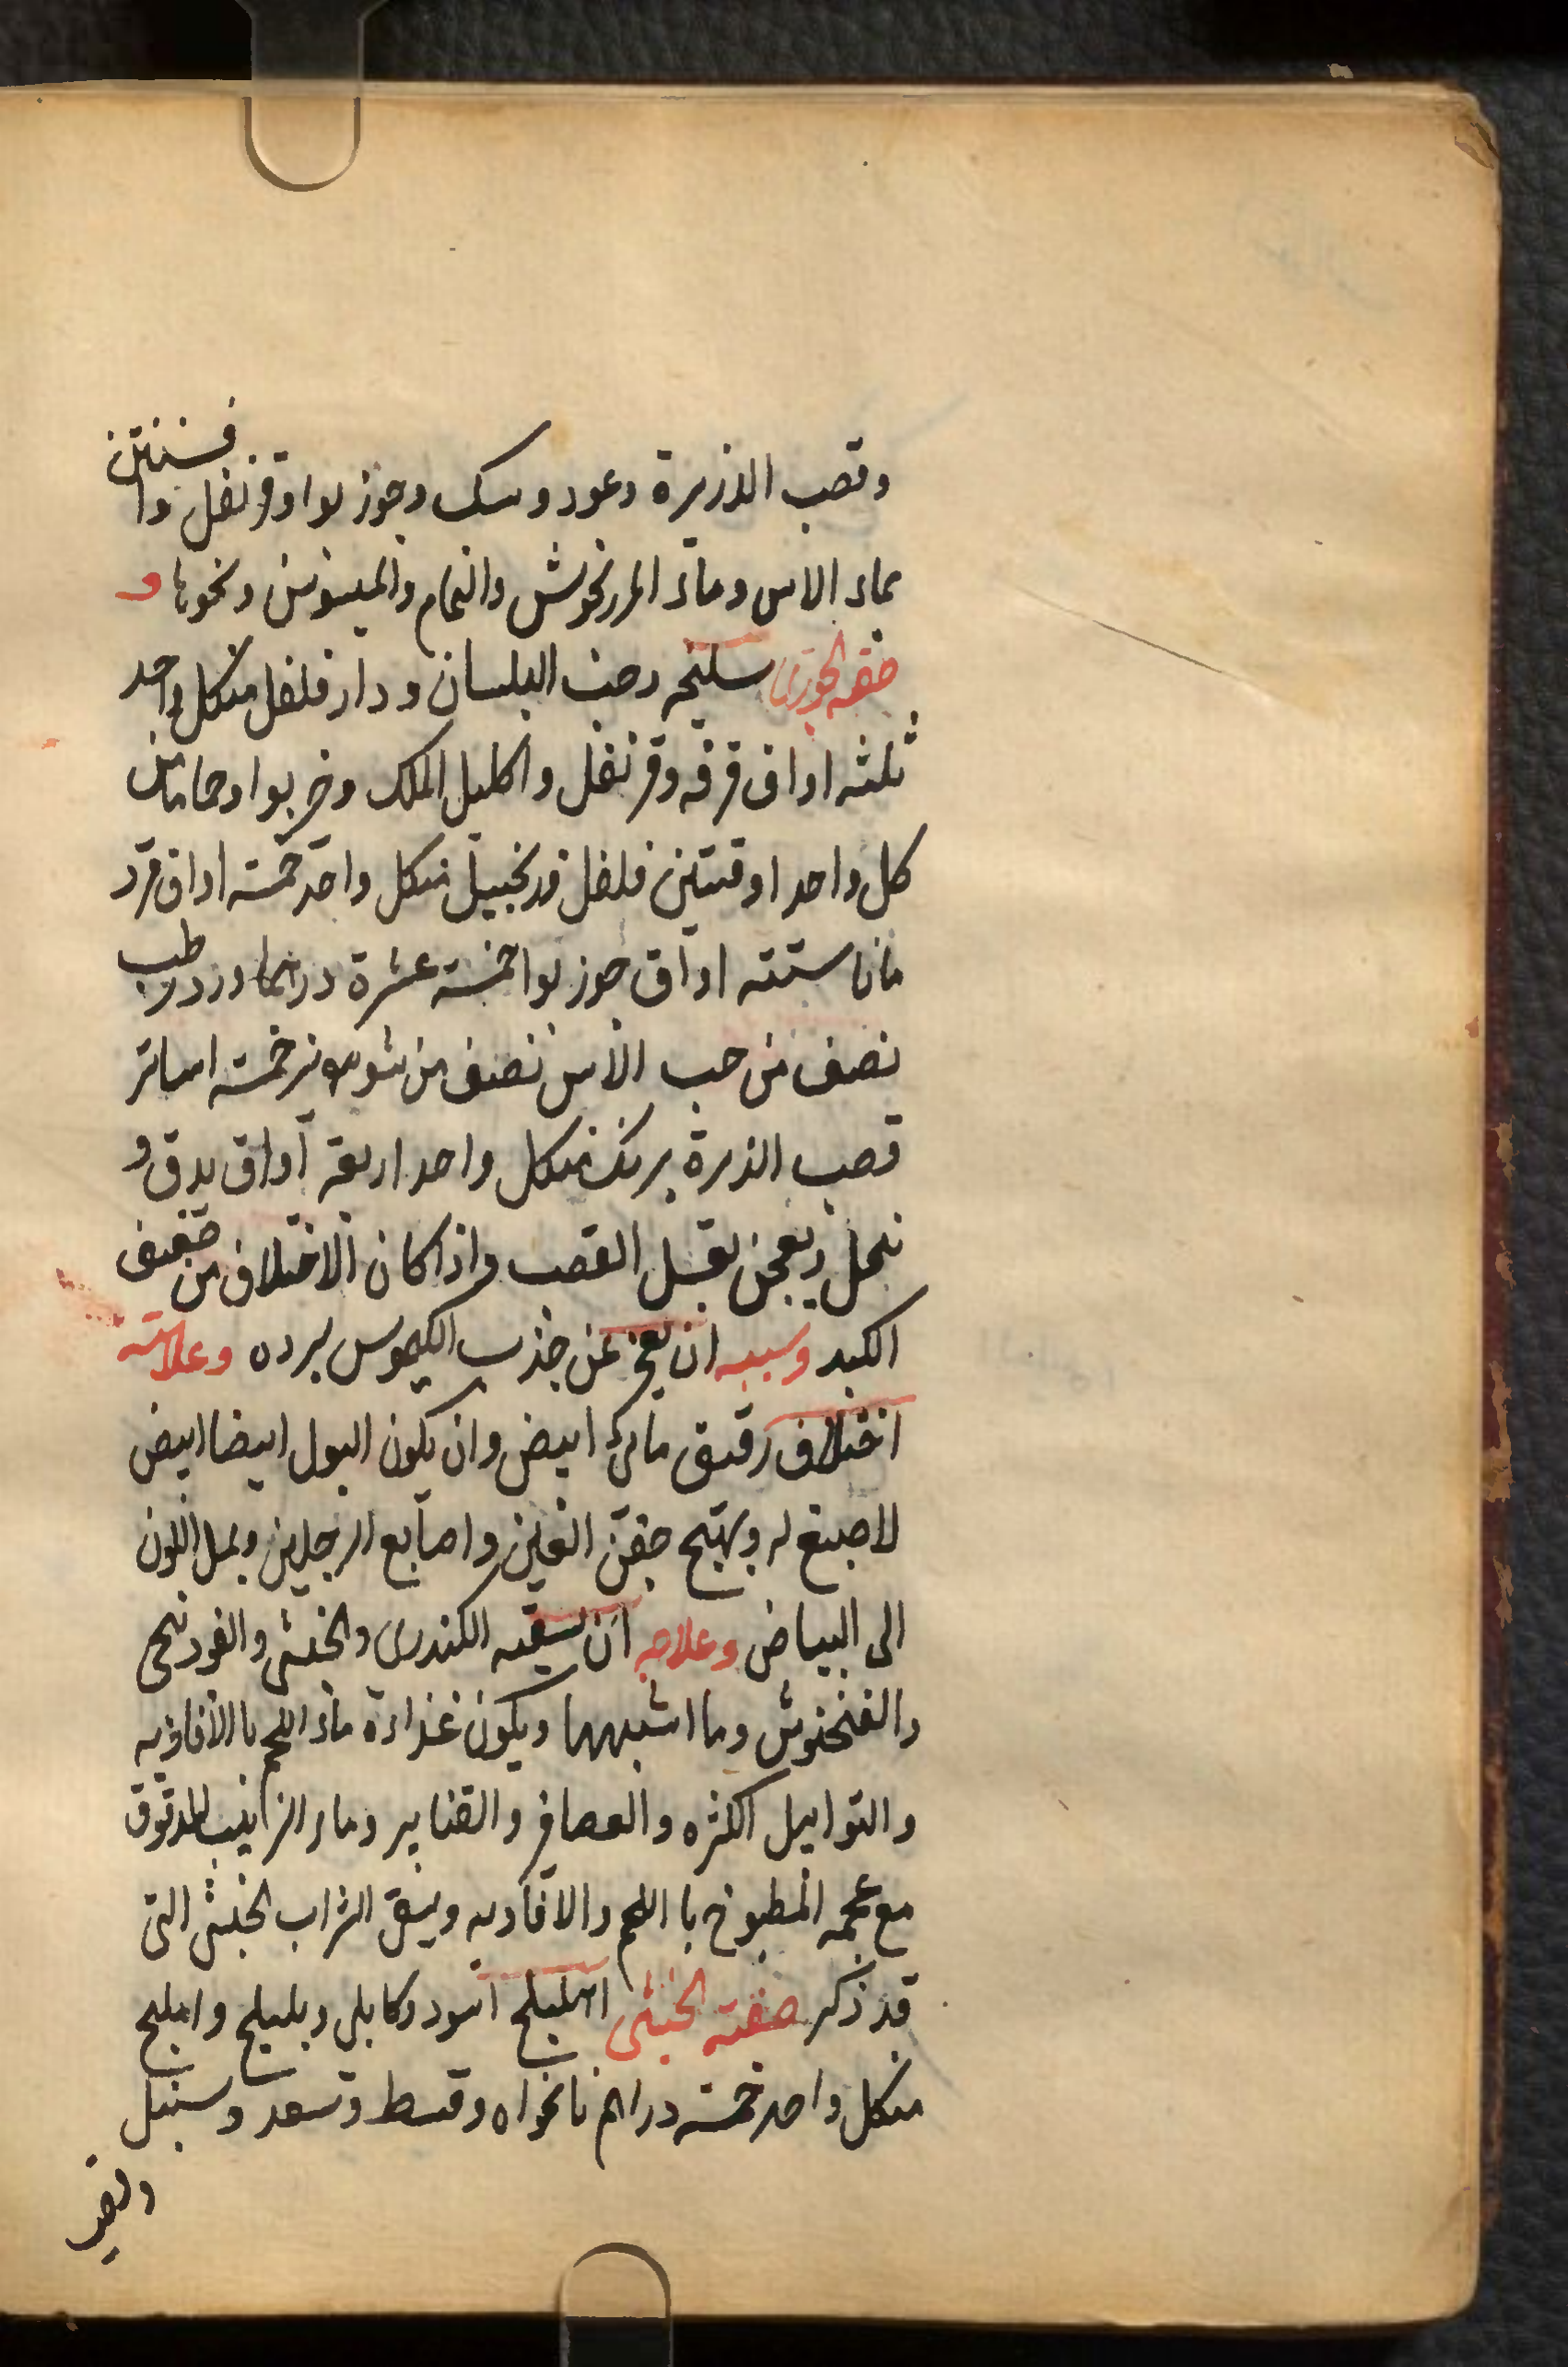 وقصب الذريرة وعود وسك وجوز بوا وقرنفل وافسنتين
بماء الاس وماء المرزنجوش والنمام والميسوسن ونحوها و
صفه الجوزى سليخه وحب البلسان ودار فلفل منكل واحد
ثلثه اواق قرفه وقرنفل واكليل الملك وخربوا وحماما من
كل واحد اوقيتين فلفل وزنجبيل منكل واحد خمسة اواق قرد
مانا ستته اواق جوز بوا خمسة عشرة درهما ورد رطب
نصف من حب الاس نصف من شونيز خمسة اساتر
قصب الذريرة برنك منكل واحد اربعة اواق يدق و
ينخل ويعجن بعسل القصب واذا كان الاختلاف من ضعف
الكبد وسببه ان يعجز عن جذب الكيموس لبرده وعلامته
اختلاف رقيق مائى ابيض وان يكون البول ايضا ابيض
لا صبغ له ويهتج جفن العين واصابع الرجلين ويميل اللون
الى البياض وعلاجه ان يسقيه الكندرى والخبثى والفودنجى
والفنجنوش وما اشبهها ويكون غذاءه ماء اللحم با الافاويه
والتوابيل اكثره والعصافر والقنابر وماء الزبيب المدقوق
مع عجمه المطبوخ با اللحم والافاويه ويسقى الشراب الخبثى التى
قد ذكر صفته الخبثى اهليلج اسود وكابلى وبليلج واملج
منكل واحد خمسة دراهم نانخواه وقسط وسعد وسنبل